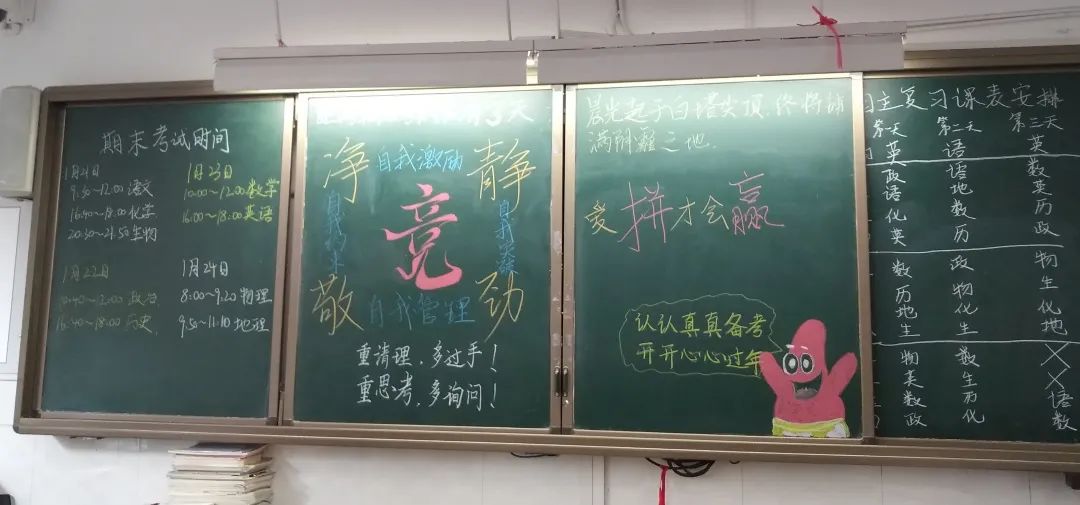 期末考试时间
1月21日
9:30~12:00 语文
16:40~18:00 化学
20:30~21:50 生物
1月23日
10:00~12:00 数学
16:00~18:00 英语
1月22日
10:40~12:00 政治
16:40~18:00 历史
1月24日
8:00~9:20 物理
9:50~11:10 地理
天
净 自我激励 静
竞
敬 自我管理 劲
重清理，多过手！
重思考，多询问！
晨光起于白塔尖顶，终将
满阴霾之地．
爱拼才会赢
认认真真备考
开开心心过年
自主复习课表安排
第一天 第二天 第三天
英 语 英
政 语 数
语 地 英
化 数 历
英 历 政
数 政 物
历 物 生
地 化 化
生 生 地
物 数 X
英 生 X
数 历 语
政 化 数